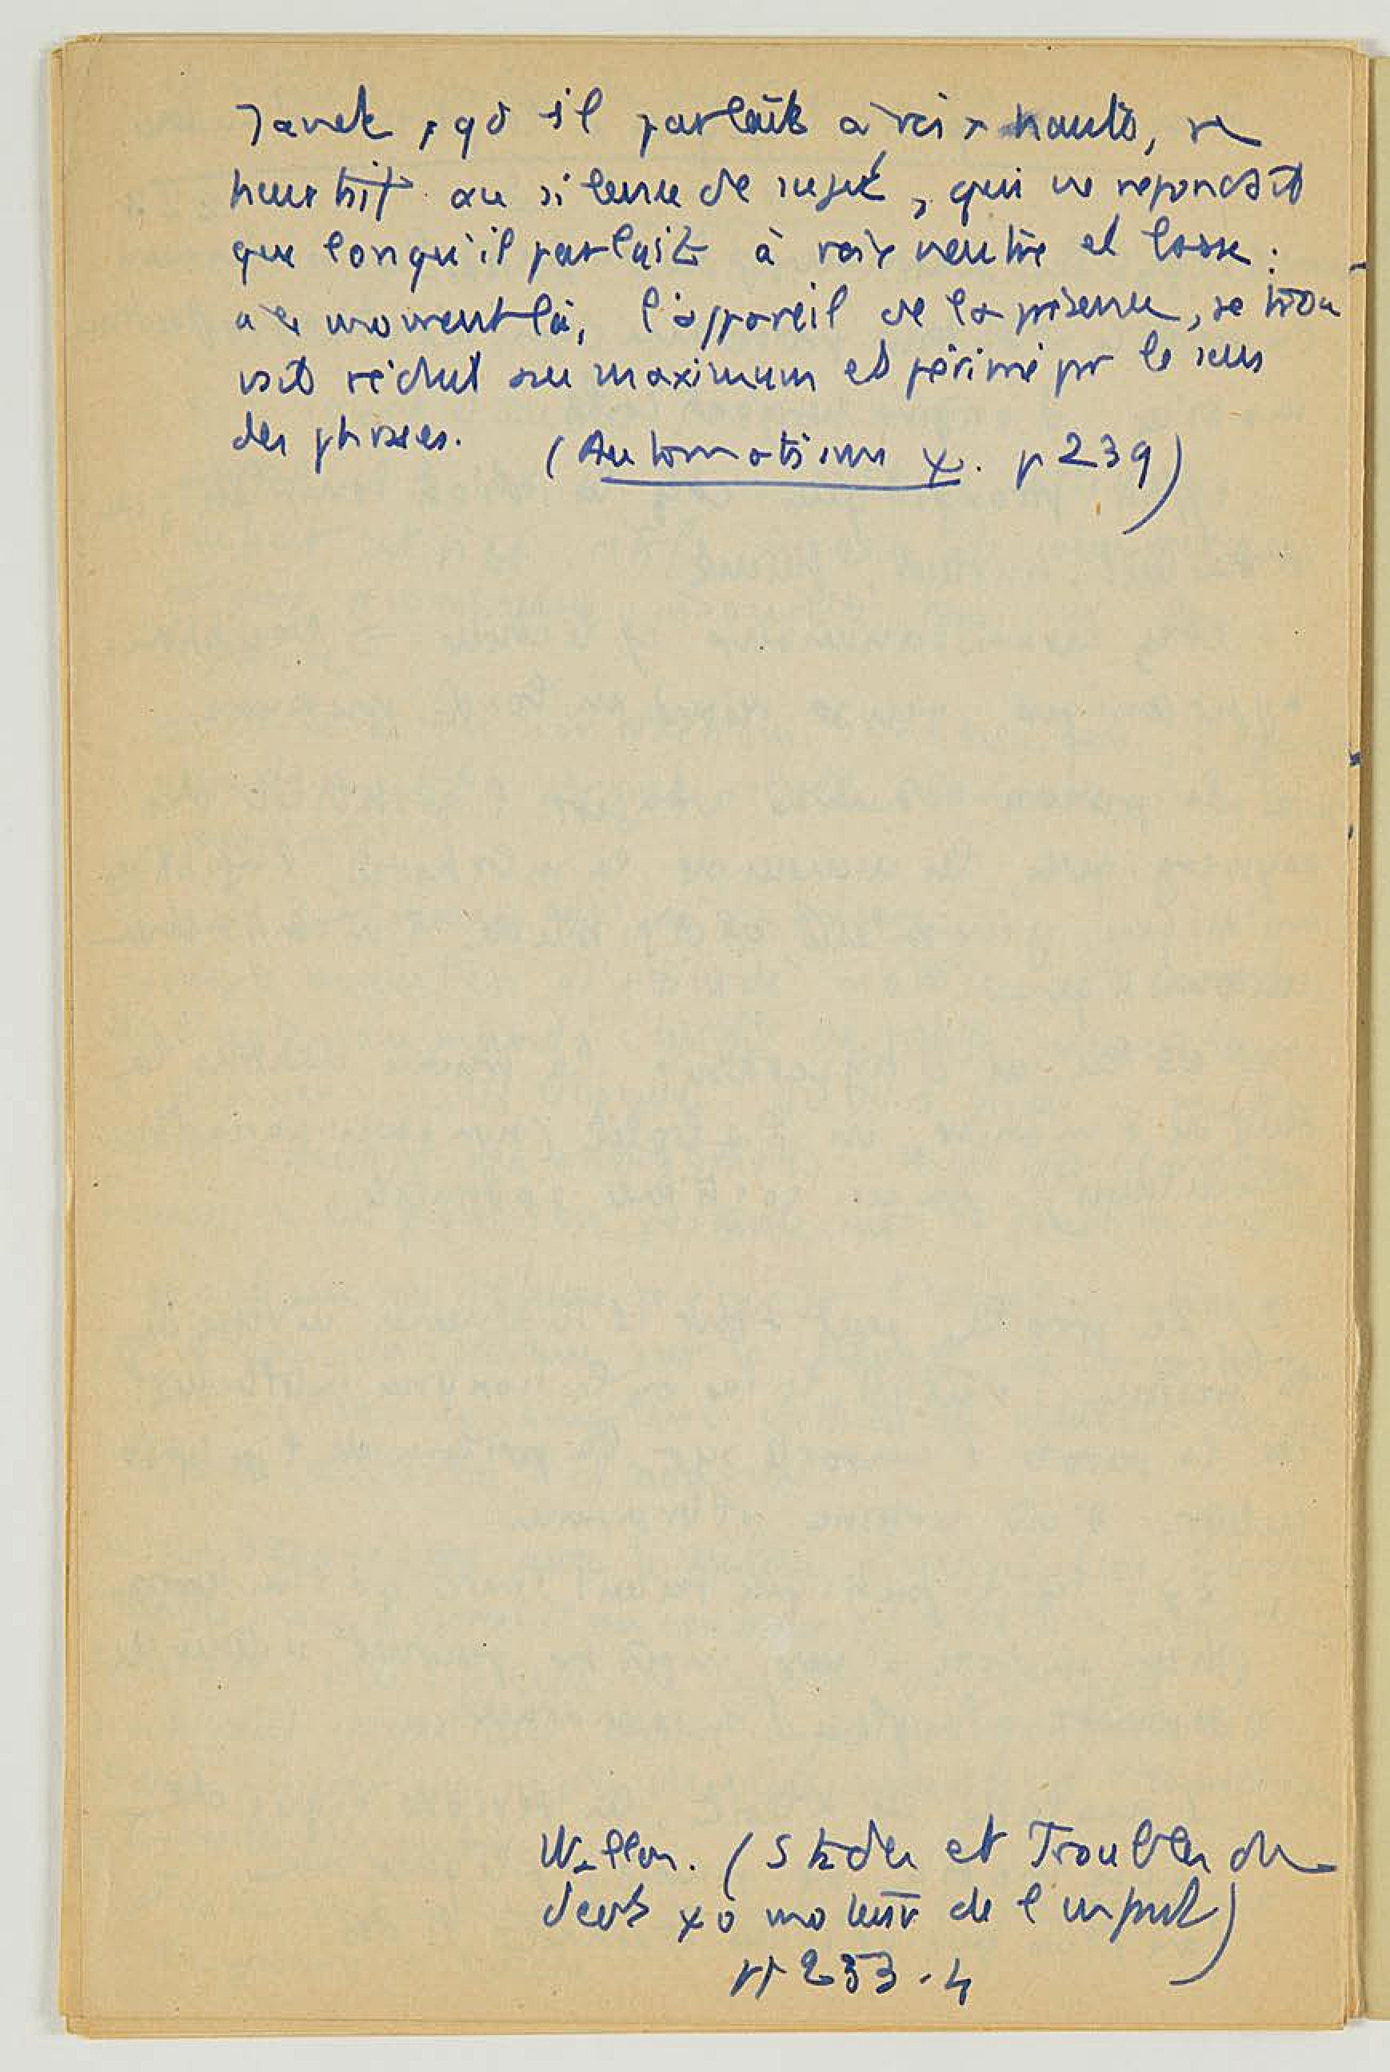 Janet, qd il parlait à voix haute, se
heurtait au silence de sujet, qui ne répondait
que lorsqu'il parlait à voix neutre et basse :
à ce moment là, l'appareil de la présence, se trou
vait réduit au maximum et périmé par le sens
des phrases. (Automatisme ψ. p 239)
Wallon. (Stades et Troubles du
devt ψo moteur de l'enfant)
p 253-4